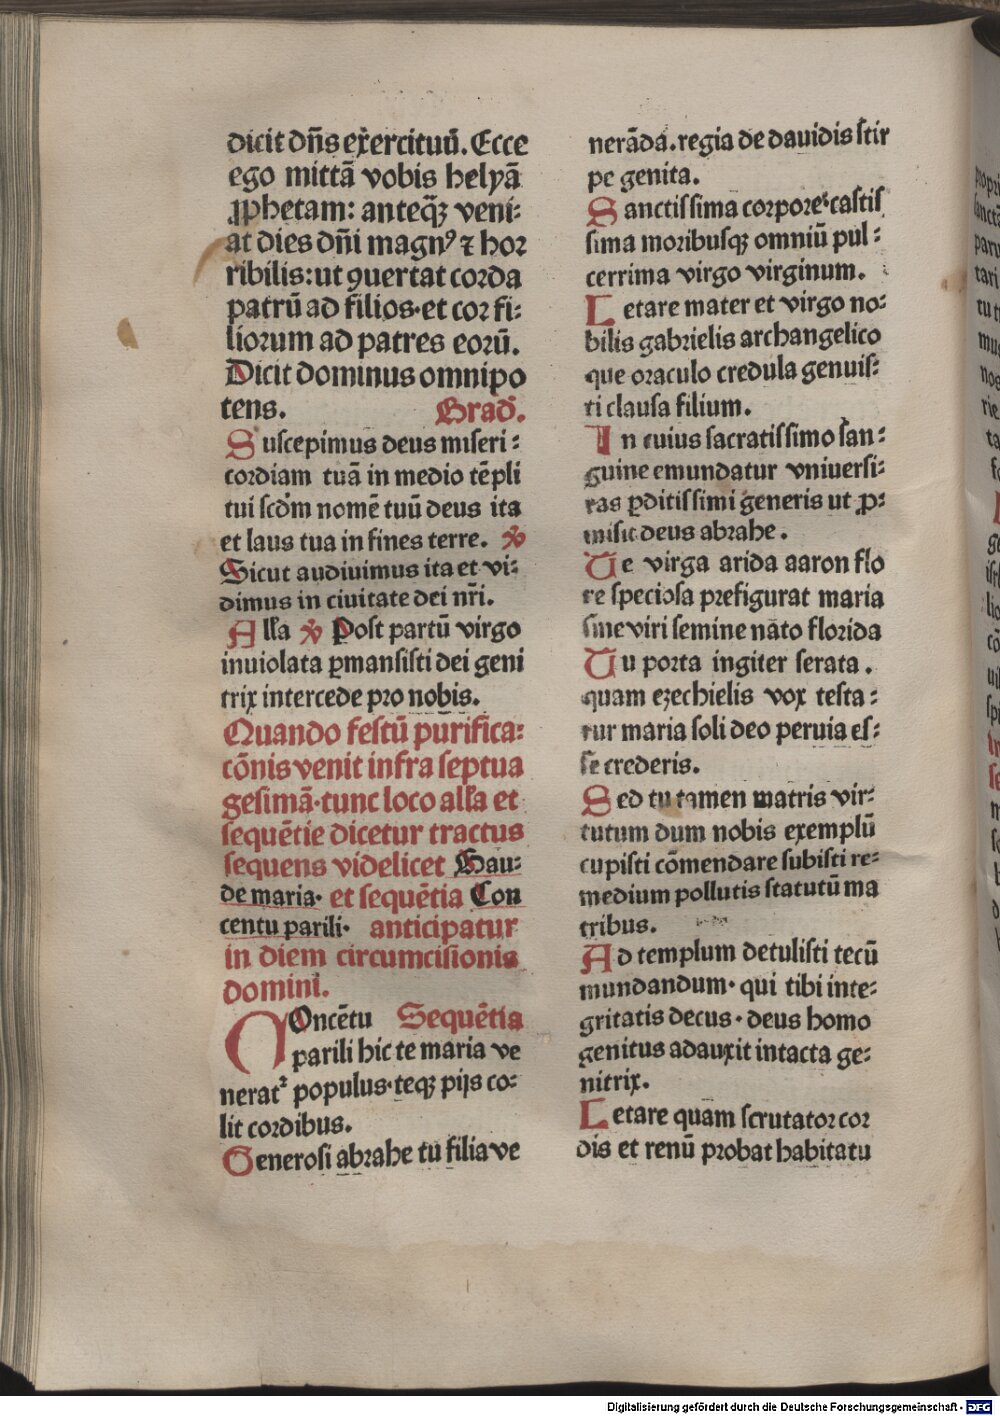 dicit dn̄s exercituū. Ecce
ego mittā vobis helyā
ꝓphetam: anteqꝫ veni⸗
at dies dn̄i magnꝰ ⁊ hor
ribilis: ut ꝯuertat corda
patrū ad filios· et cor fi⸗
liorum ad patres eorū.
Dicit dominus omnipo
tens. Grad̄.
Suscepimus deus miseri⸗
cordiam tuā in medio tēpli
tui scdm̄ nomē tuū deus ita
et laus tua in fines terre. ℣
Sicut audiuimus ita et vi⸗
dimus in ciuitate dei nr̄i.
Alla ℣ Post partū virgo
inuiolata ꝑmansisti dei geni
trix intercede pro nobis.
Quando festū purifica⸗
cōnis venit infra septua
gesimā· tunc loco alla et
sequētie dicetur tractus
sequens videlicet Gau⸗
de maria· et sequētia Con
centu parili· anticipatur
in diem circumcisionis
domini.
Concētu Sequētia
parili hic te maria ve
nerat᷑ populus· teqꝫ pijs co⸗
lit cordibus.
Generosi abrahe tu filia ve
nerāda. regia de dauidis stir
pe genita.
Sanctissima corpore· castis
sima moribusqꝫ omniū pul⸗
cerrima virgo virginum.
Letare mater et virgo no⸗
bilis gabrielis archangelico
que oraculo credula genuis⸗
ti clausa filium.
In cuius sacratissimo san⸗
guine emundatur vniuersi⸗
tas ꝑditissimi generis ut ꝓ⸗
misit deus abrahe.
Te virga arida aaron flo
re speciosa prefigurat maria
sine viri semine nato florida
Tu porta ingiter serata.
quam ezechielis vox testa⸗
tur maria soli deo peruia es⸗
se crederis.
Sed tu tamen matris vir⸗
tutum dum nobis exemplū
cupisti cōmendare subisti re⸗
medium pollutis statutū ma
tribus.
Ad templum detulisti tecū
mundandum· qui tibi inte⸗
gritatis decus· deus homo
genitus adauxit intacta ge⸗
nitrix.
Letare quam scrutator cor
dis et renū probat habitatu
Digitalisierung gefördert durch die Deutsche Forschungsgemeinschaft - DFG